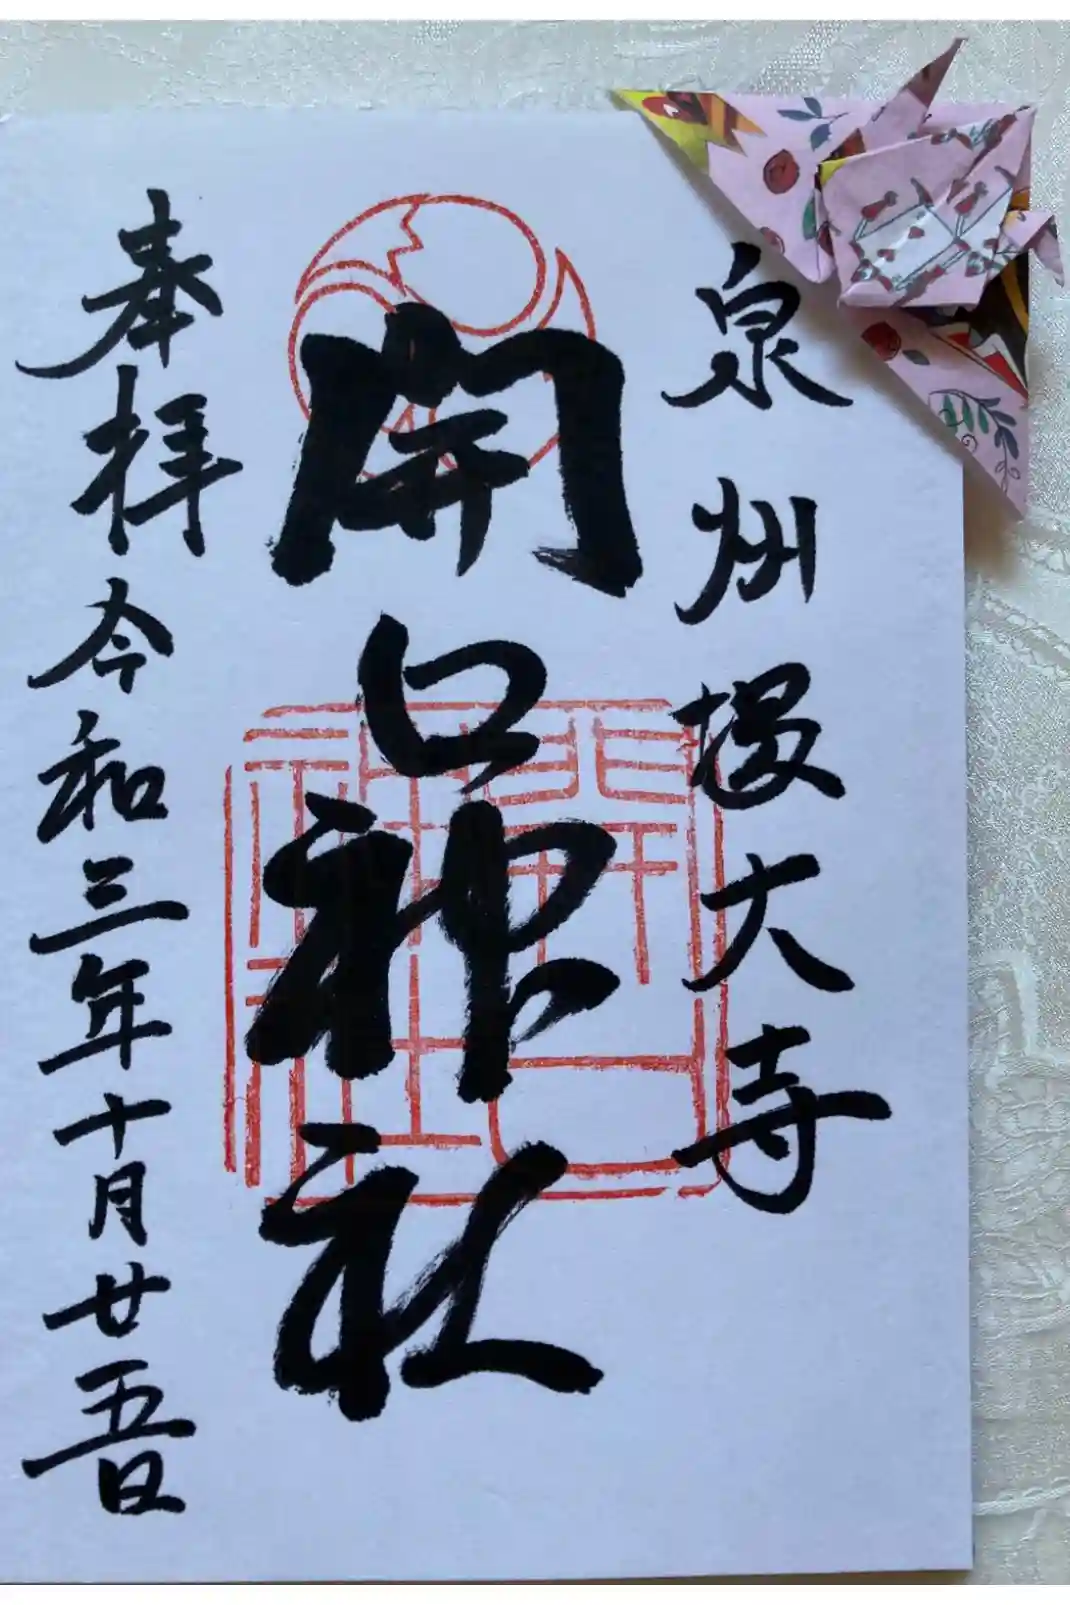 泉州堺大寺
開口神社
開口神社
奉拝 令和三年十月廿五日